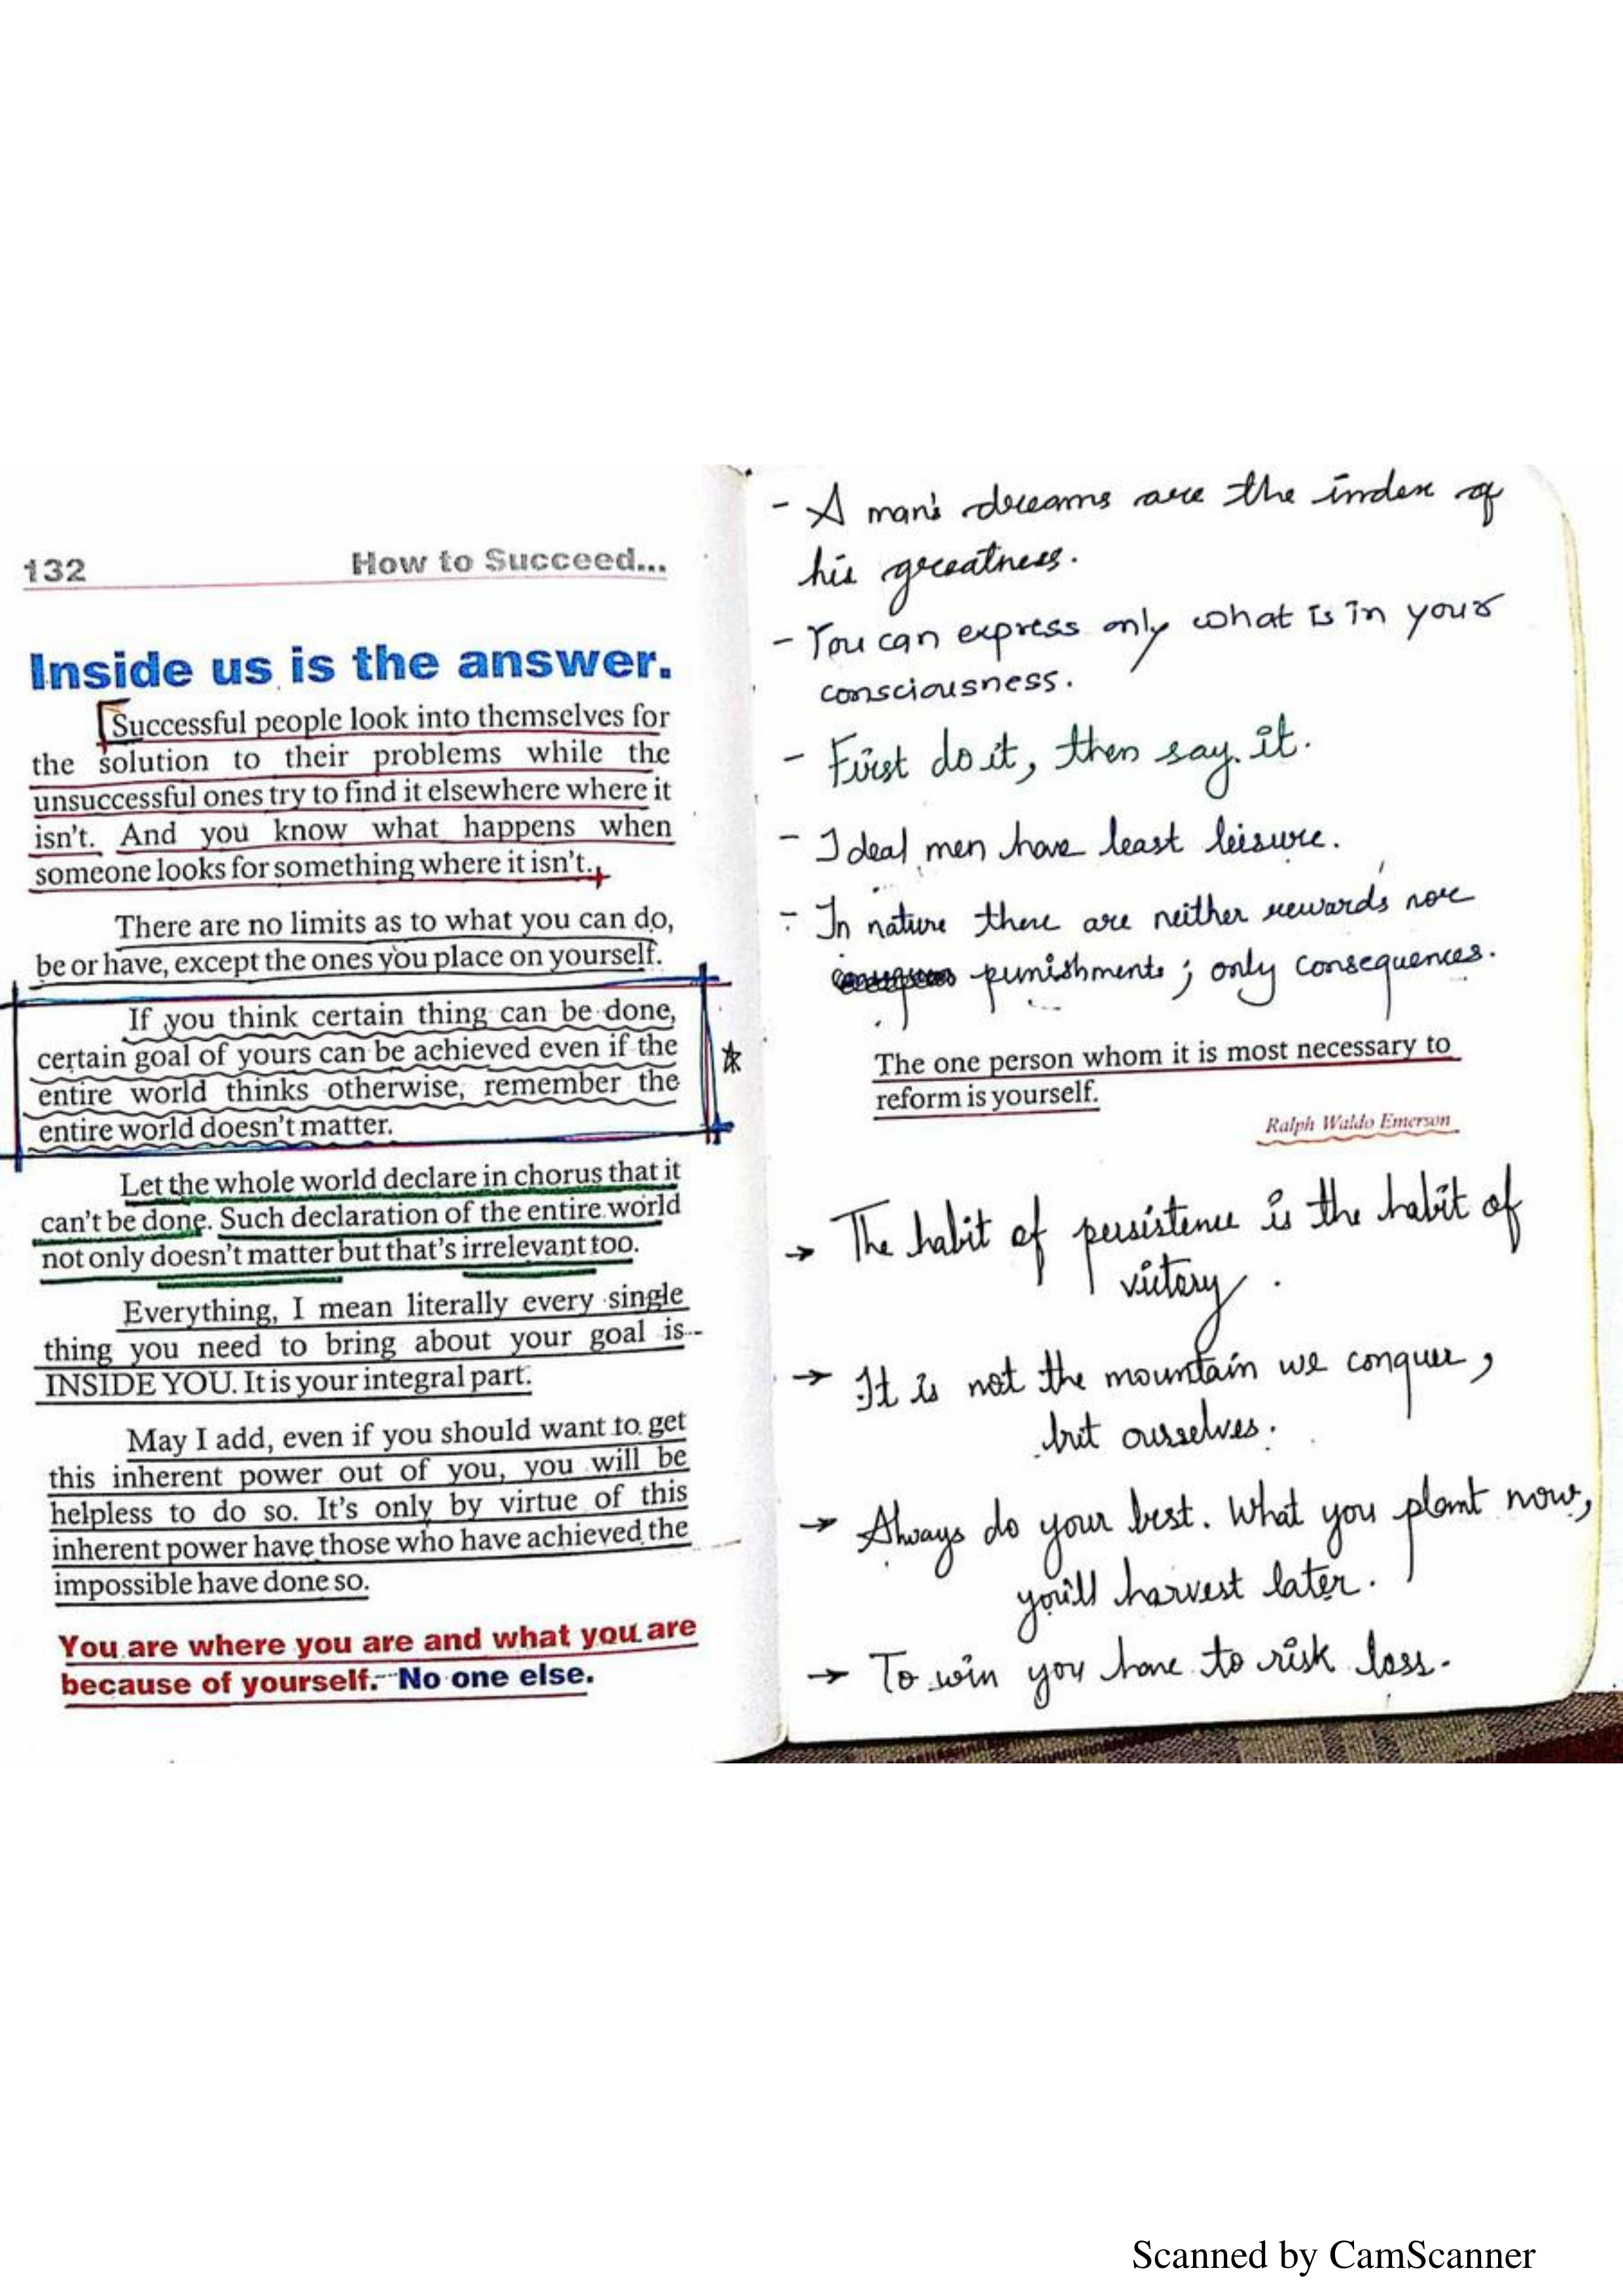 132 How to Succeed...
Inside us is the answer.
Successful people look into themselves for
the solution to their problems while the
unsuccessful ones try to find it elsewhere where it
isn't. And you know what happens when
someone looks for something where it isn't.
There are no limits as to what you can do,
be or have, except the ones you place on yourself.
If you think certain thing can be done,
certain goal of yours can be achieved even if the
entire world thinks otherwise, remember the
entire world doesn't matter.
Let the whole world declare in chorus that it
can't be done. Such declaration of the entire world
not only doesn't matter but that's irrelevant too.
Everything, I mean literally every single
thing you need to bring about your goal is
INSIDE YOU. It is your integral part.
May I add, even if you should want to get
this inherent power out of you, you will be
helpless to do so. It's only by virtue of this
inherent power have those who have achieved the
impossible have done so.
You are where you are and what you are
because of yourself. No one else.
- A man's dreams are the index of
his greatness.
- You can express only what is in your
consciousness.
- First do it, then say it.
- Ideal men have least leisure.
- In nature there are neither rewards nor
punishments; only consequences.
The one person whom it is most necessary to
reform is yourself.
Ralph Waldo Emerson
→ The habit of persistence is the habit of
victory.
→ It is not the mountain we conquer,
but ourselves.
→ Always do your best. What you plant now,
you'll harvest later.
→ To win you have to risk loss.
Scanned by CamScanner